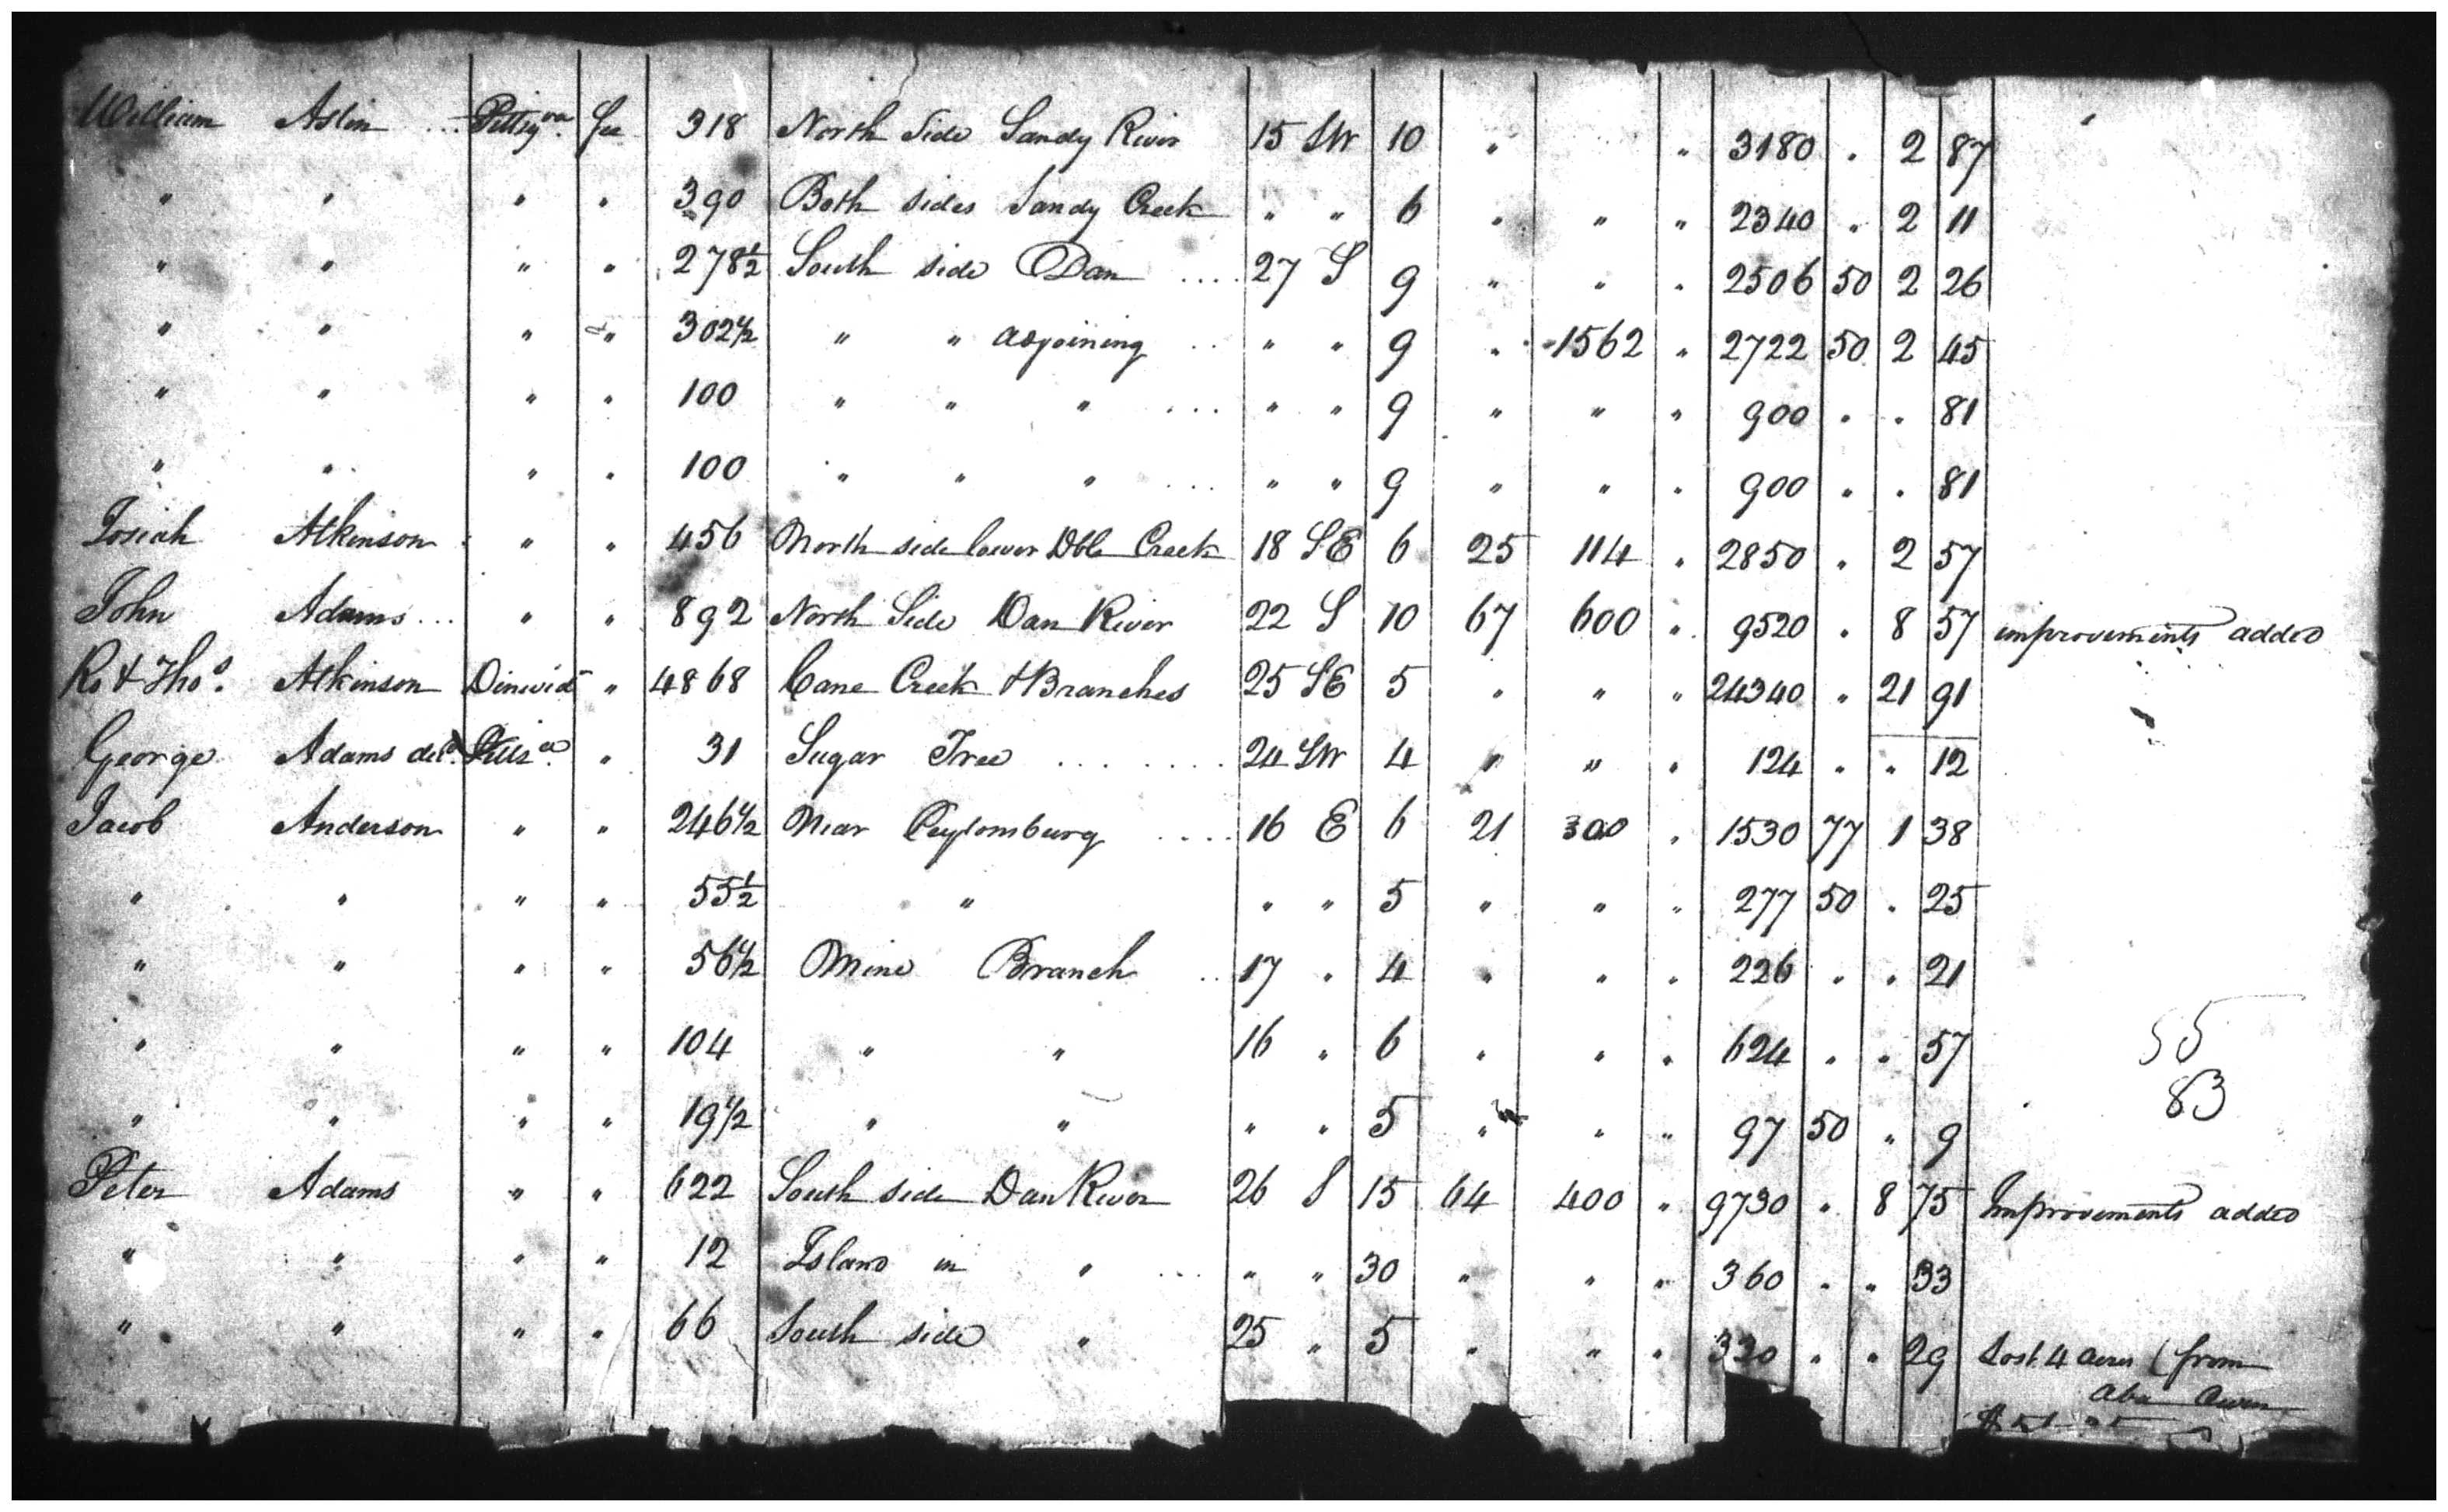 William Aslin ... Pittsyva. fee 318 North Side Sandy River 15 SW 10 " " 3180 " 2 87
" " " " 390 Both sides Sandy Creek " " 6 " " " 2340 " 2 11
" " " " 278½ South side Dan .... 27 S 9 " " " 2506 50 2 26
" " " " 302½ " " adjoining .. " " 9 " 1562 " 2722 50 2 45
" " " " 100 " " " ... " " 9 " " " 900 " " 81
" " " " 100 " " " ... " " 9 " " " 900 " " 81
Josiah Atkinson " " 456 North side lower Dble Creek 18 SE 6 25 114 " 2850 " 2 57
John Adams ... " " 892 North Side Dan River 22 S 10 67 600 " 9520 " 8 57 improvements added
Ro & Thos. Atkinson Dinwid " 4868 Cane Creek & Branches 25 SE 5 " " " 24340 " 21 91
George Adams decd. Pittsva. " 31 Sugar Tree ........ 24 SW 4 " " " 124 " " 12
Jacob Anderson " " 246½ Near Peytonsburg .... 16 E 6 21 300 " 1530 77 1 38
" " " " 55½ " " " 5 " " " 277 50 " 25
" " " " 56½ Mine Branch .. 17 " 4 " " " 226 " " 21
" " " " 104 " " 16 " 6 " " " 624 " " 57 55
" " " " 19½ " " " " 5 " " " 97 50 " 9 83
Peter Adams " " 622 South side Dan River 26 S 15 64 400 " 9730 " 8 75 Improvements added
" " " " 12 Island in " ... " " 30 " " " 360 " " 33
" " " " 66 South side " 25 " 5 " " " 330 " " 29 Lost 4 acres (from
Owen